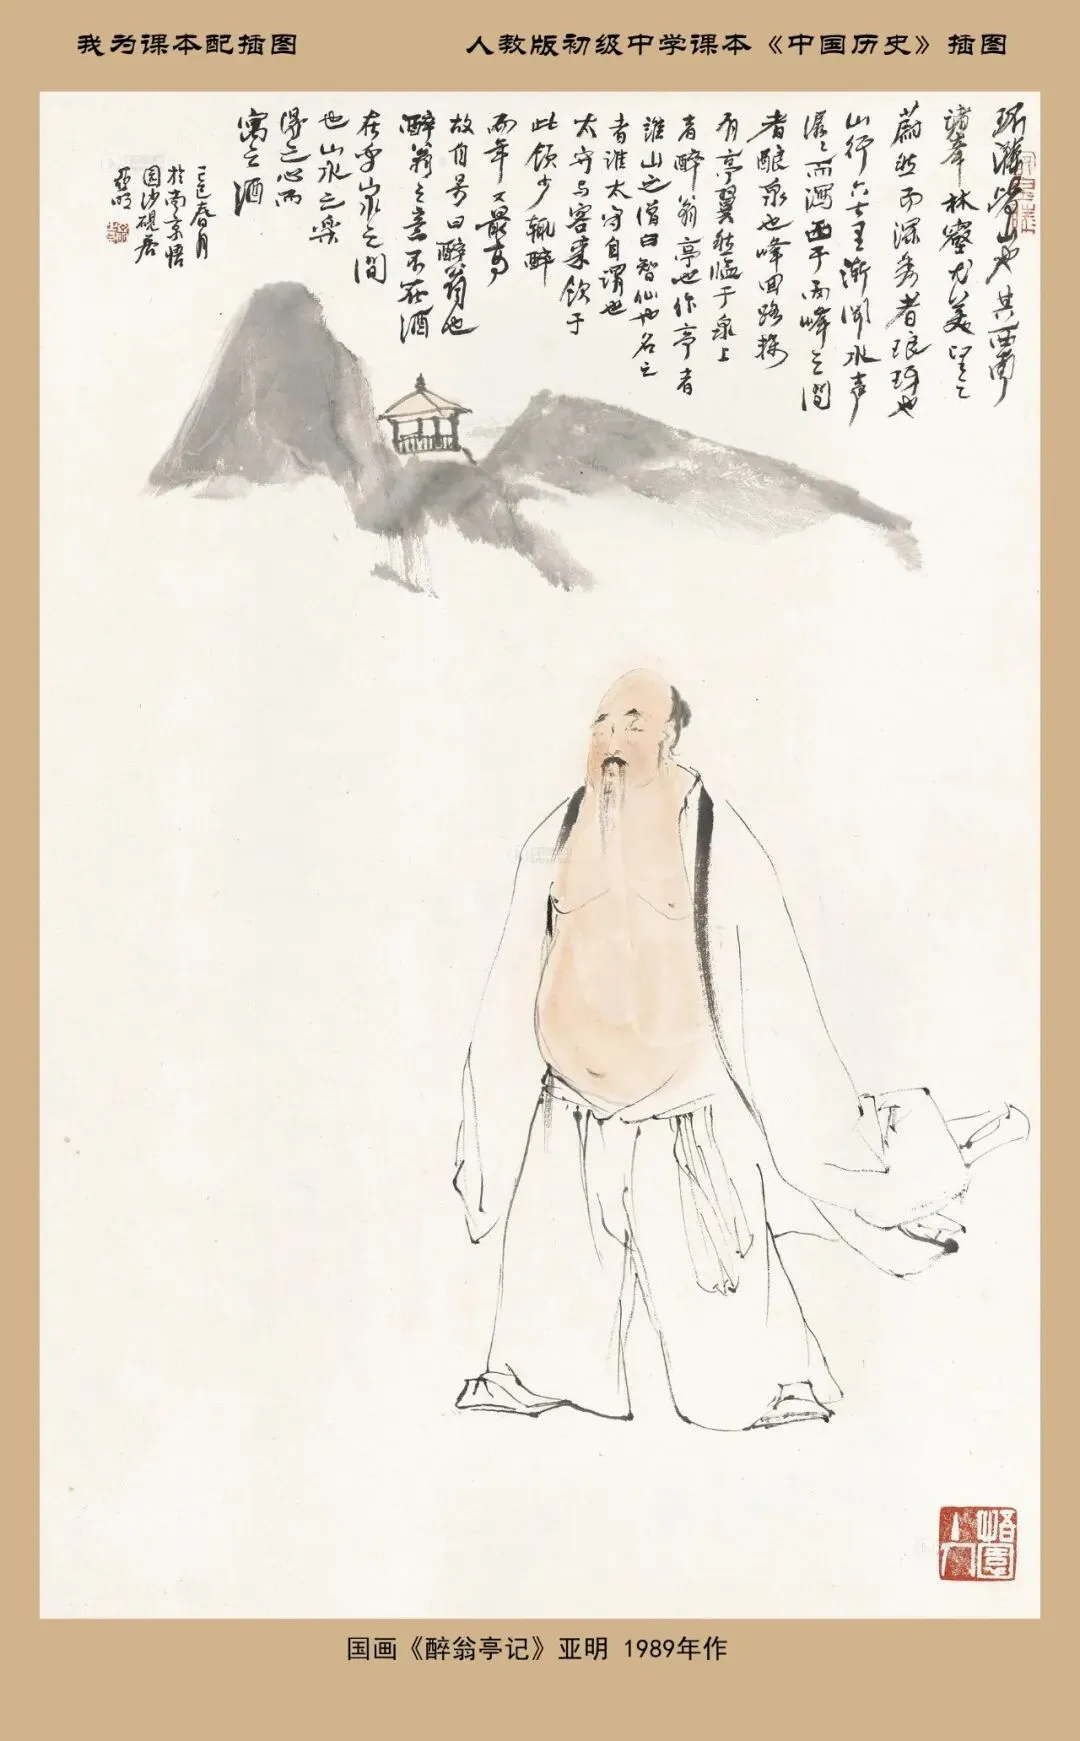 我为课本配插图
人教版初级中学课本《中国历史》插图
环滁皆山也其西南
诸峯林壑尤美望之
蔚然而深秀者琅玡也
山行六七里渐闻水声
潺々而泻西于两峰之間
者酿泉也峰回路转
有亭翼然临于泉上
者醉翁亭也作亭者
谁山之僧曰智仙也名之
者谁太守自谓也
太守与客来饮于
此饮少辄醉
而年又最高
故自号曰醉翁也
醉翁之意不在酒
在乎山水之間
也山水之樂
得之心而
寓之酒
己巳春月
於南京悟
园沙砚居
亚明
国画《醉翁亭记》亚明 1989年作